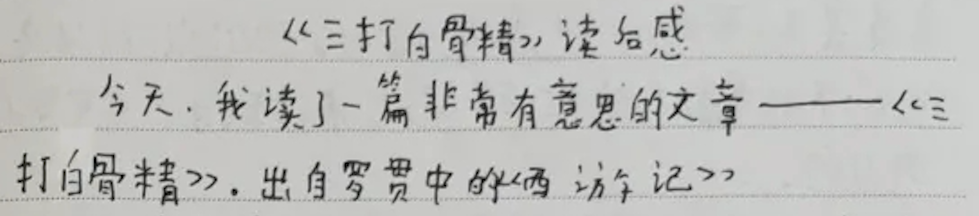 《三打白骨精》读后感
今天.我读了一篇非常有意思的文章——《三
打白骨精》。出自罗贯中的《西游记》